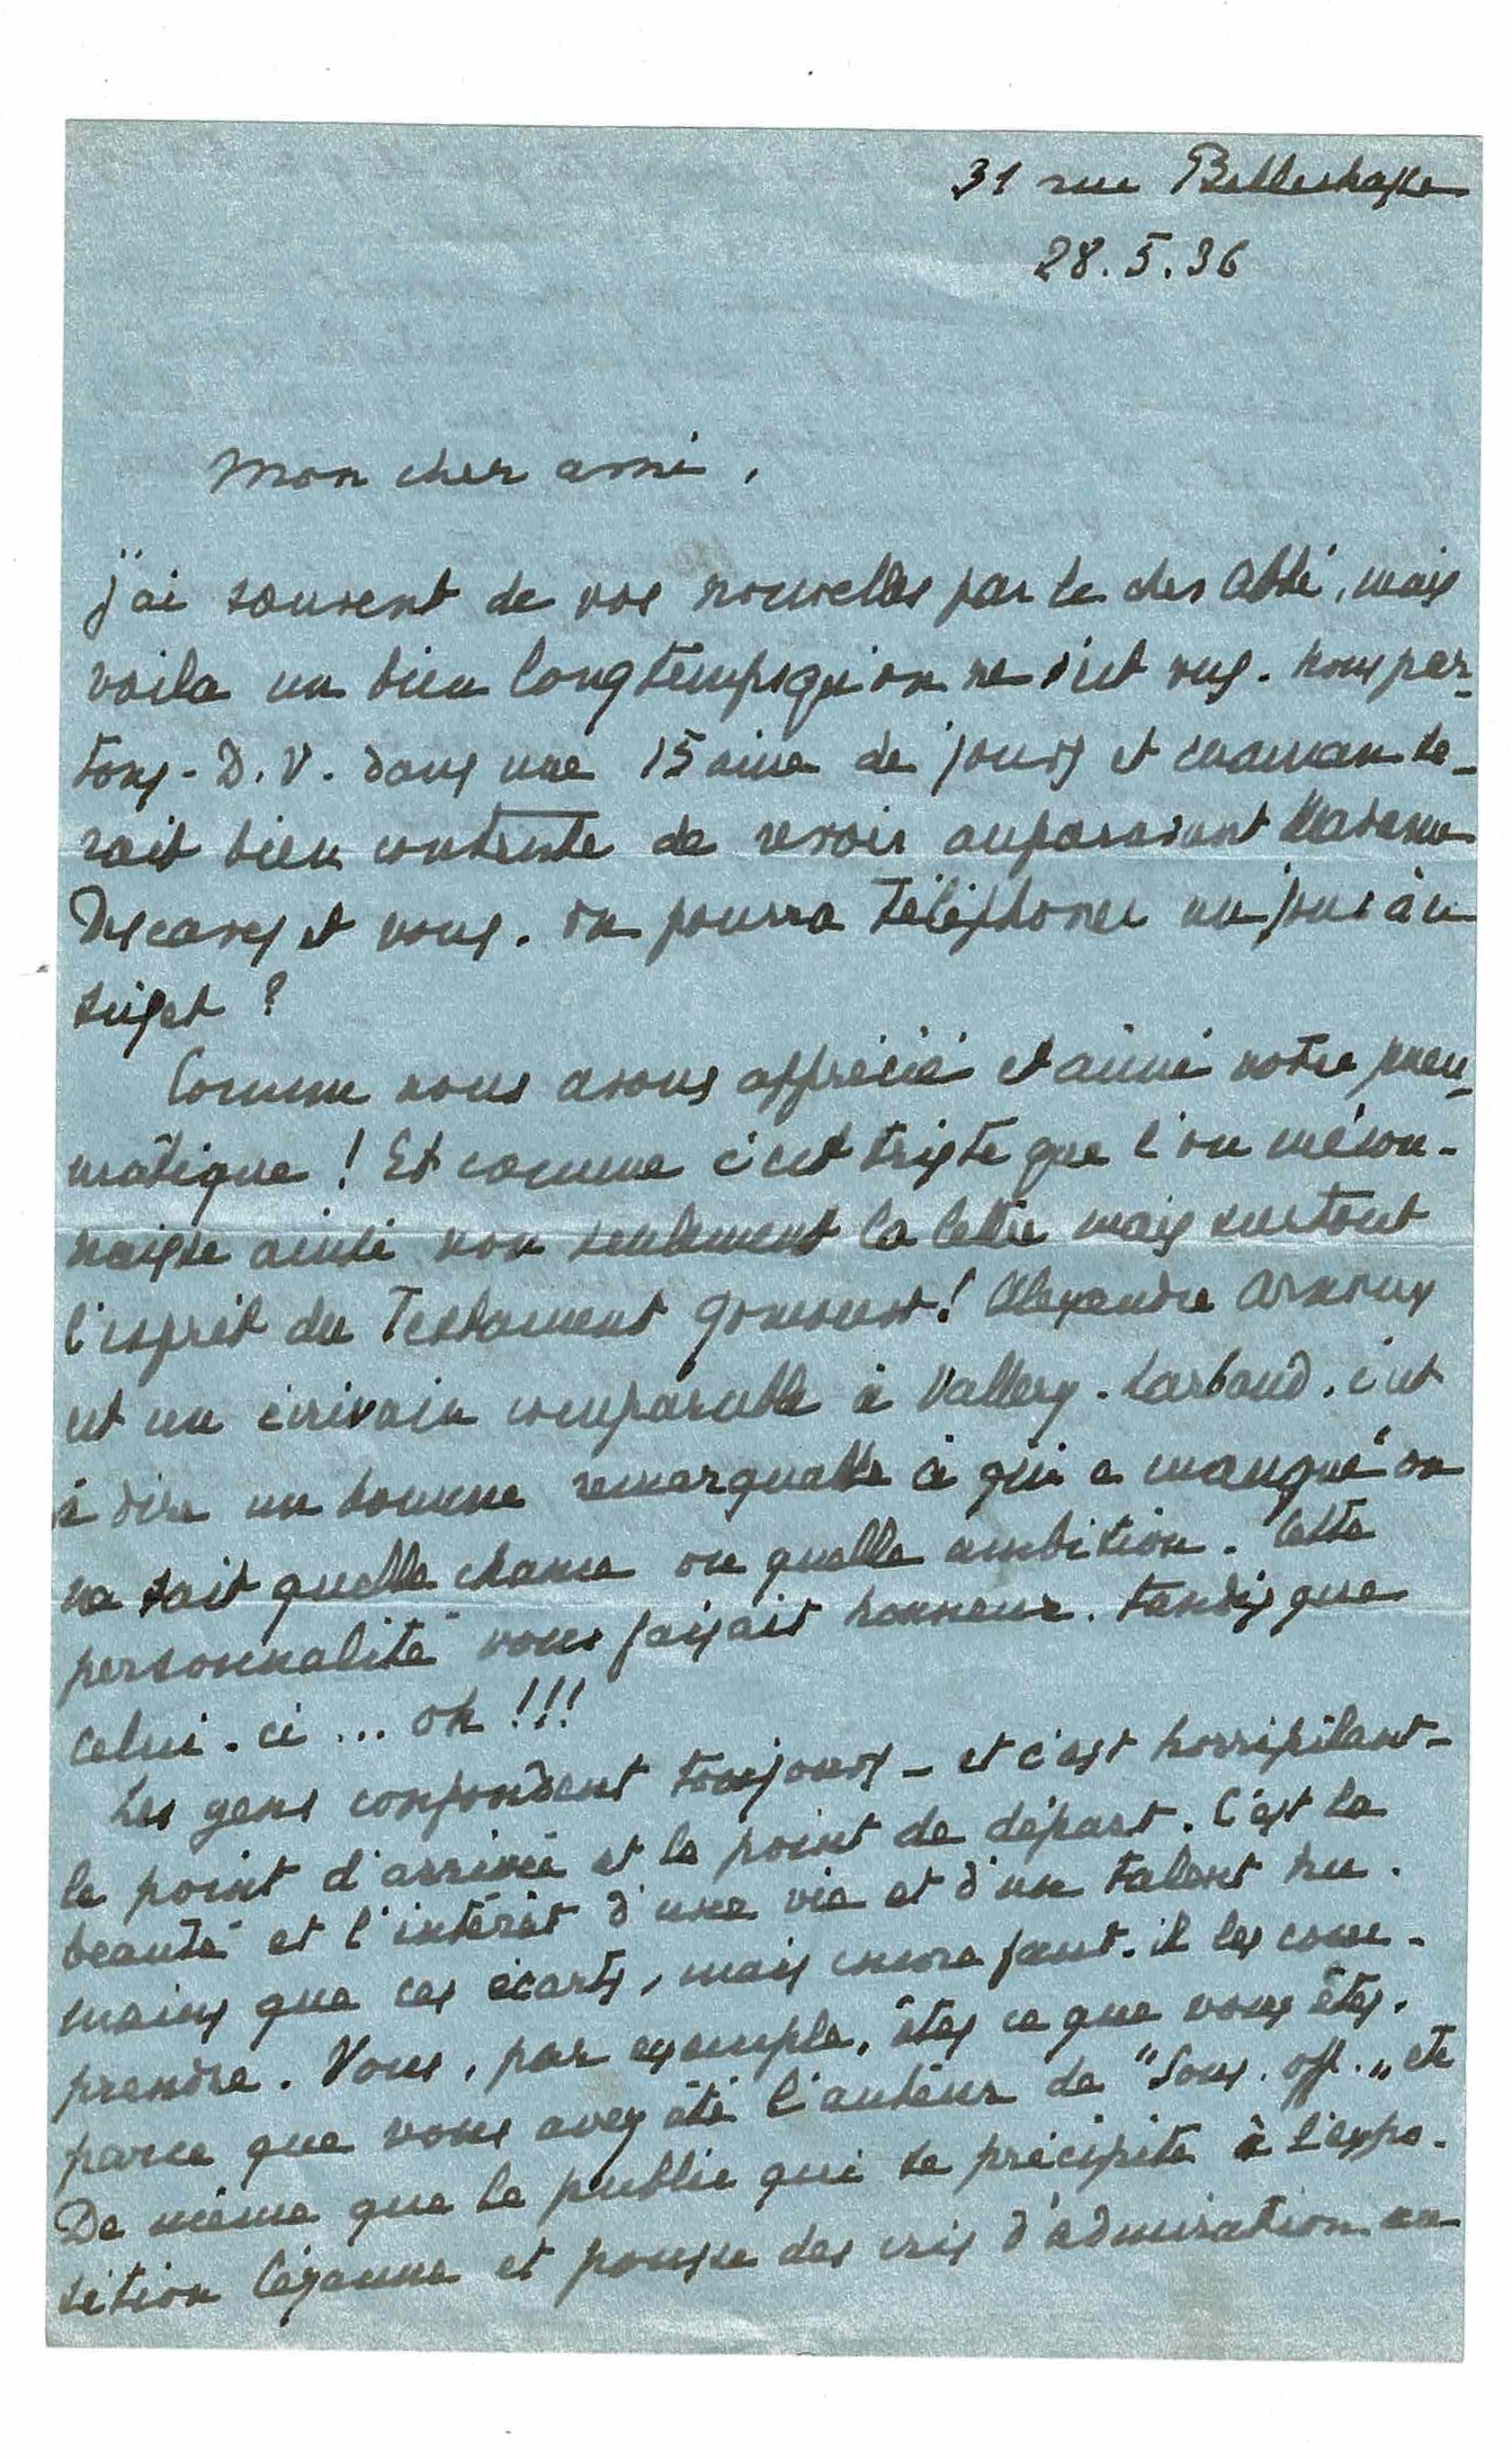 31 rue Bellechasse
28.5.36
Mon cher ami,
j'ai souvent de vos nouvelles par le cher Abbé, mais
voila un bien longtemps qu'on ne s'est vus. Nous par-
tons - D.V. dans une 15aine de jours et maman se-
rait bien contente de revoir auparavant Madame
Descaves et vous. On pourra téléphoner un jour à ce
sujet ?
Comme nous avons apprécié et aimé votre pneu-
matique ! Et comme c'est triste que l'on mécon-
naisse ainsi non seulement la lettre mais surtout
l'esprit du Testament Goncourt ! Alexandre Arnoux
est un écrivain comparable à Vallery-Larbaud. c'est
à dire un homme remarquable à qui a manqué on
ne sait quelle chance ou quelle ambition. Cette
personnalité vous faisait honneur. tandis que
celui-ci ... oh !!!
Les gens confondent toujours - et c'est horripilant -
le point d'arrivée et le point de départ. C'est la
beauté et l'intérêt d'une vie et d'un talent hu-
mains que ces écarts, mais encore faut-il les com-
prendre. Vous, par exemple, êtes ce que vous êtes,
parce que vous avez été l'auteur de "Sous. off." etc
De même que le public qui se précipite à l'expo-
sition Cézanne et pousse des cris d'admiration au-